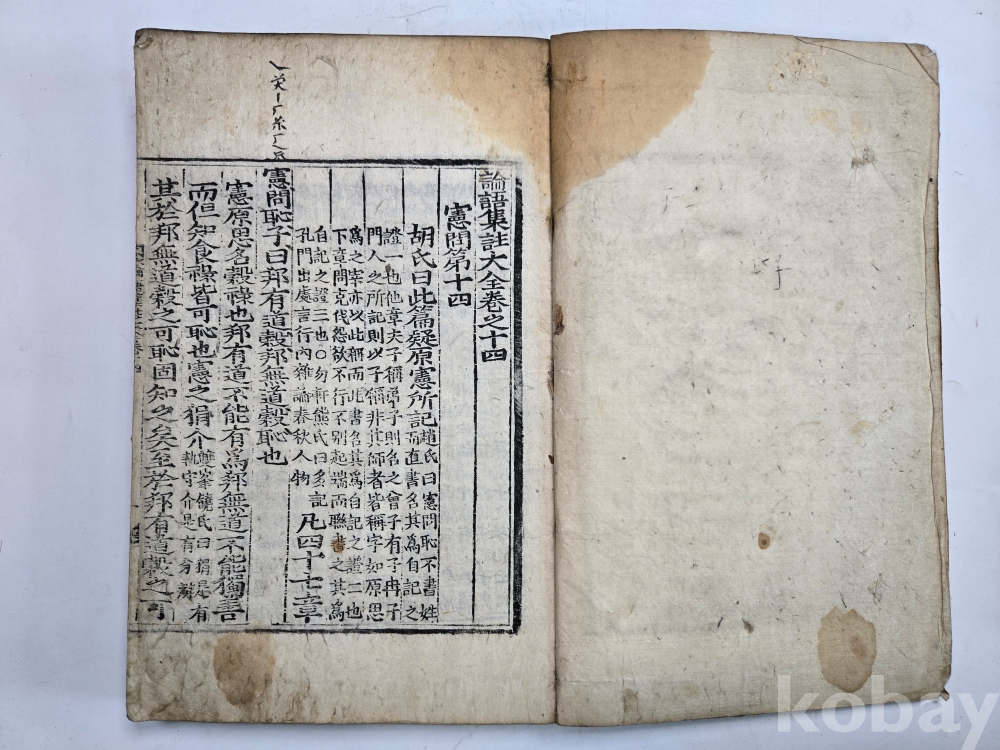 論語集註大全卷之十四
憲問第十四
胡氏曰此篇疑原憲所記
趙氏曰憲問恥不書姓
而直書名其為自記之
證一也他章夫子稱弟子則名之曾子有子冉子
門人之所記則以子稱非其師者皆稱字如原思
為之宰亦以此稱而此書名其為自記之證二也
下章問克伐怨欲不行不別起端而聯書之其為
自記之證三也○勿軒熊氏曰多記
孔門出處言行內雜論春秋人物
凡四十七章
憲問恥子曰邦有道穀邦無道穀恥也
憲原思名穀祿也邦有道不能有為邦無道不能獨善
而但知食祿皆可恥也憲之狷介
雙峯饒氏曰狷是有
執守介是有分辨
其於邦無道穀之可恥固知之矣至於邦有道穀之可
kobay